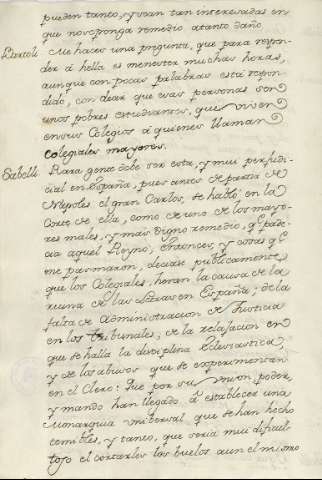 pueden tanto, y vean tan interesadas en
que no se ponga remedio a tanto daño.
Me haces una pregunta, que para respon-
der á hella es menester muchas horas,
aunque con pocas palabras está respon-
dido, con decir que esas personas son
unos pobres estudiantes, que viven
en sus Colegios á quienes llaman
Colegiales mayores.
Sabelli Rara gente debe ser esta, y muy perjudi-
cial en España, pues antes de partir de
Napoles el gran Carlos, se habló en la
Corte de ella, como de uno de los mayo-
res males, y mas digno remedio, q.e pade-
cia aquel Reyno, entonces, y cosas q.e
me pasmaron, decíase publicamente
que los Colegiales, heran la causa de la
ruina de las Letras en España; de la
falta de Administracion de Justicia
en los tribunales; de la relajacion en
que se halla la disciplina Eclesiastica;
y de los abusos que se experimentan
en el Clero: Que por su union, poder,
y mando han llegado á establecer una
Monarquia universal que se han hecho
temibles, y tanto, que seria mui dificul-
toso el cortarles los buelos aun el mismo